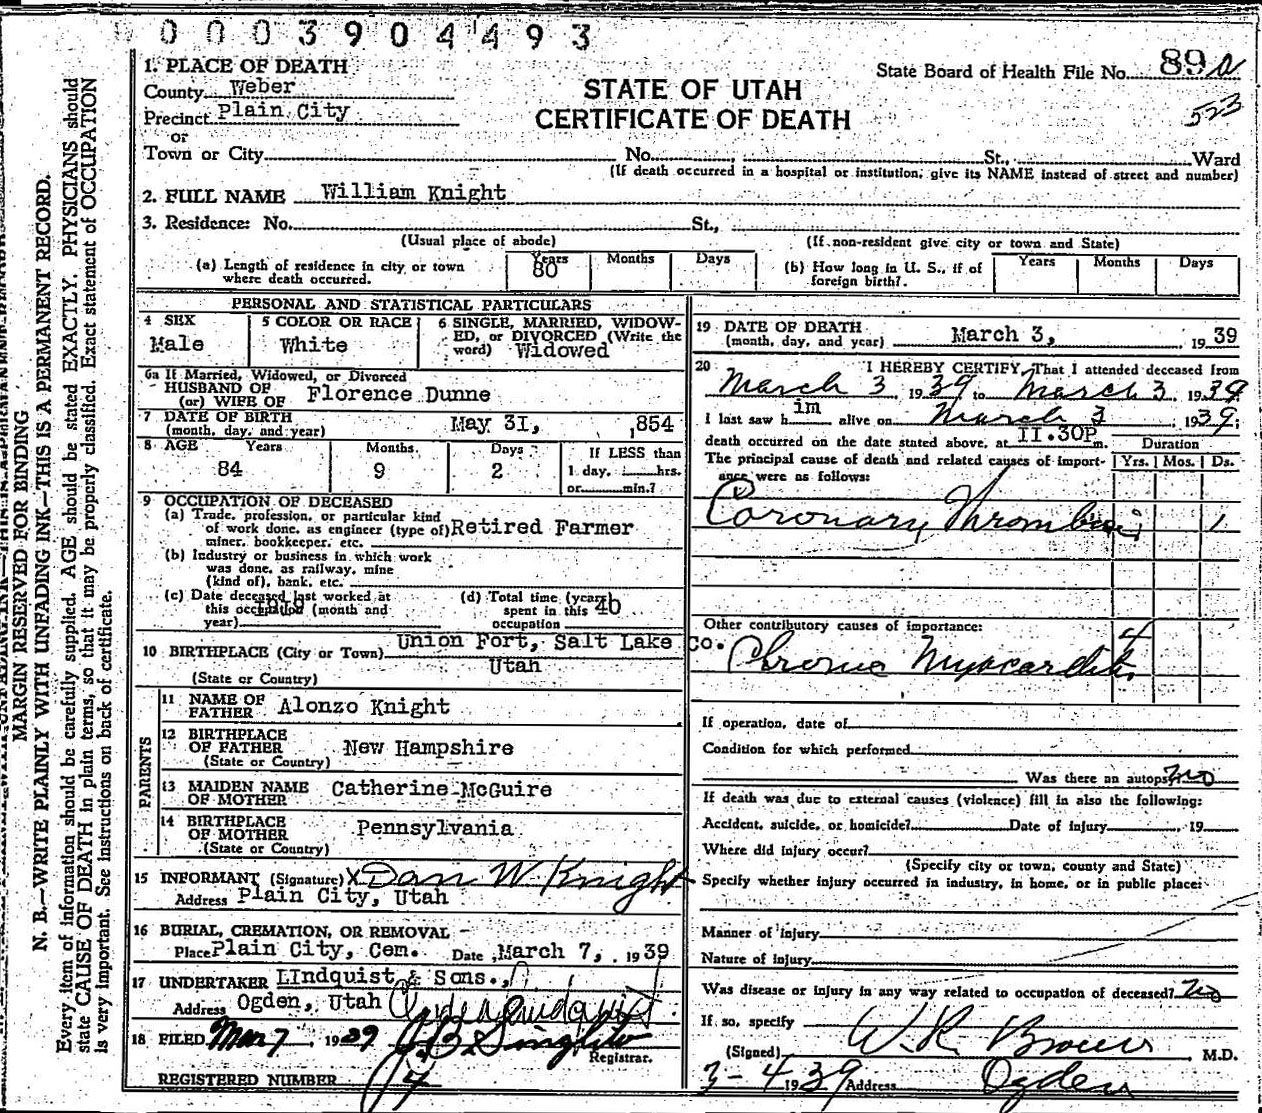 0003904493
1. PLACE OF DEATH
County Weber
Precinct Plain City
or
Town or City No. St., Ward
(If death occurred in a hospital or institution, give its NAME instead of street and number)
STATE OF UTAH
CERTIFICATE OF DEATH
State Board of Health File No. 89 a
523
2. FULL NAME William Knight
3. Residence: No. St.,
(Usual place of abode) (If non-resident give city or town and State)
(a) Length of residence in city or town where death occurred. Years 80 Months Days
(b) How long in U. S., if of foreign birth? Years Months Days
PERSONAL AND STATISTICAL PARTICULARS
4 SEX Male
5 COLOR OR RACE White
6 SINGLE, MARRIED, WIDOWED, or DIVORCED (Write the word) Widowed
6a If Married, Widowed, or Divorced
HUSBAND OF
(or) WIFE OF Florence Dunne
7 DATE OF BIRTH
(month, day, and year) May 31, ,854
8 AGE Years 84 Months 9 Days 2
If LESS than
1 day, hrs.
or min.?
9 OCCUPATION OF DECEASED
(a) Trade, profession, or particular kind
of work done, as engineer (type of) Retired Farmer
miner, bookkeeper, etc.
(b) Industry or business in which work
was done, as railway, mine
(kind of), bank, etc.
(c) Date deceased last worked at
this occupation (month and
year)
(d) Total time (years)
spent in this 40
occupation
10 BIRTHPLACE (City or Town) Union Fort, Salt Lake Co.
Utah
(State or Country)
PARENTS
11 NAME OF
FATHER Alonzo Knight
12 BIRTHPLACE
OF FATHER New Hampshire
(State or Country)
13 MAIDEN NAME
OF MOTHER Catherine McGuire
14 BIRTHPLACE
OF MOTHER Pennsylvania
(State or Country)
15 INFORMANT (Signature) X Dan W Knight
Address Plain City, Utah
16 BURIAL, CREMATION, OR REMOVAL
Place Plain City, Cem. Date March 7, , 1939
17 UNDERTAKER LIndquist & Sons.,
Address Ogden, Utah
18 FILED Mar 7 1939
Registrar.
REGISTERED NUMBER 4
19 DATE OF DEATH
(month, day, and year) March 3, , 1939
20 I HEREBY CERTIFY, That I attended deceased from
March 3, 1939 to March 3, 1939
I last saw him alive on March 3 1939;
death occurred on the date stated above, at 11.30P m. Duration
The principal cause of death and related causes of import- Yrs. Mos. Ds.
ance were as follows:
Coronary Thrombosis 1
Other contributory causes of importance:
Chronic Myocarditis 4
If operation, date of
Condition for which performed
Was there an autopsy no
If death was due to external causes (violence) fill in also the following:
Accident, suicide, or homicide? Date of injury , 19
Where did injury occur?
(Specify city or town, county and State)
Specify whether injury occurred in industry, in home, or in public place:
Manner of injury
Nature of injury
Was disease or injury in any way related to occupation of deceased? no
If so, specify
(Signed) W. R. Brown , M.D.
3-4 1939 Address Ogden
MARGIN RESERVED FOR BINDING
N. B.—WRITE PLAINLY WITH UNFADING INK—THIS IS A PERMANENT RECORD.
Every item of information should be carefully supplied. AGE should be stated EXACTLY. PHYSICIANS should
state CAUSE OF DEATH in plain terms, so that it may be properly classified. Exact statement of OCCUPATION
is very important. See instructions on back of certificate.